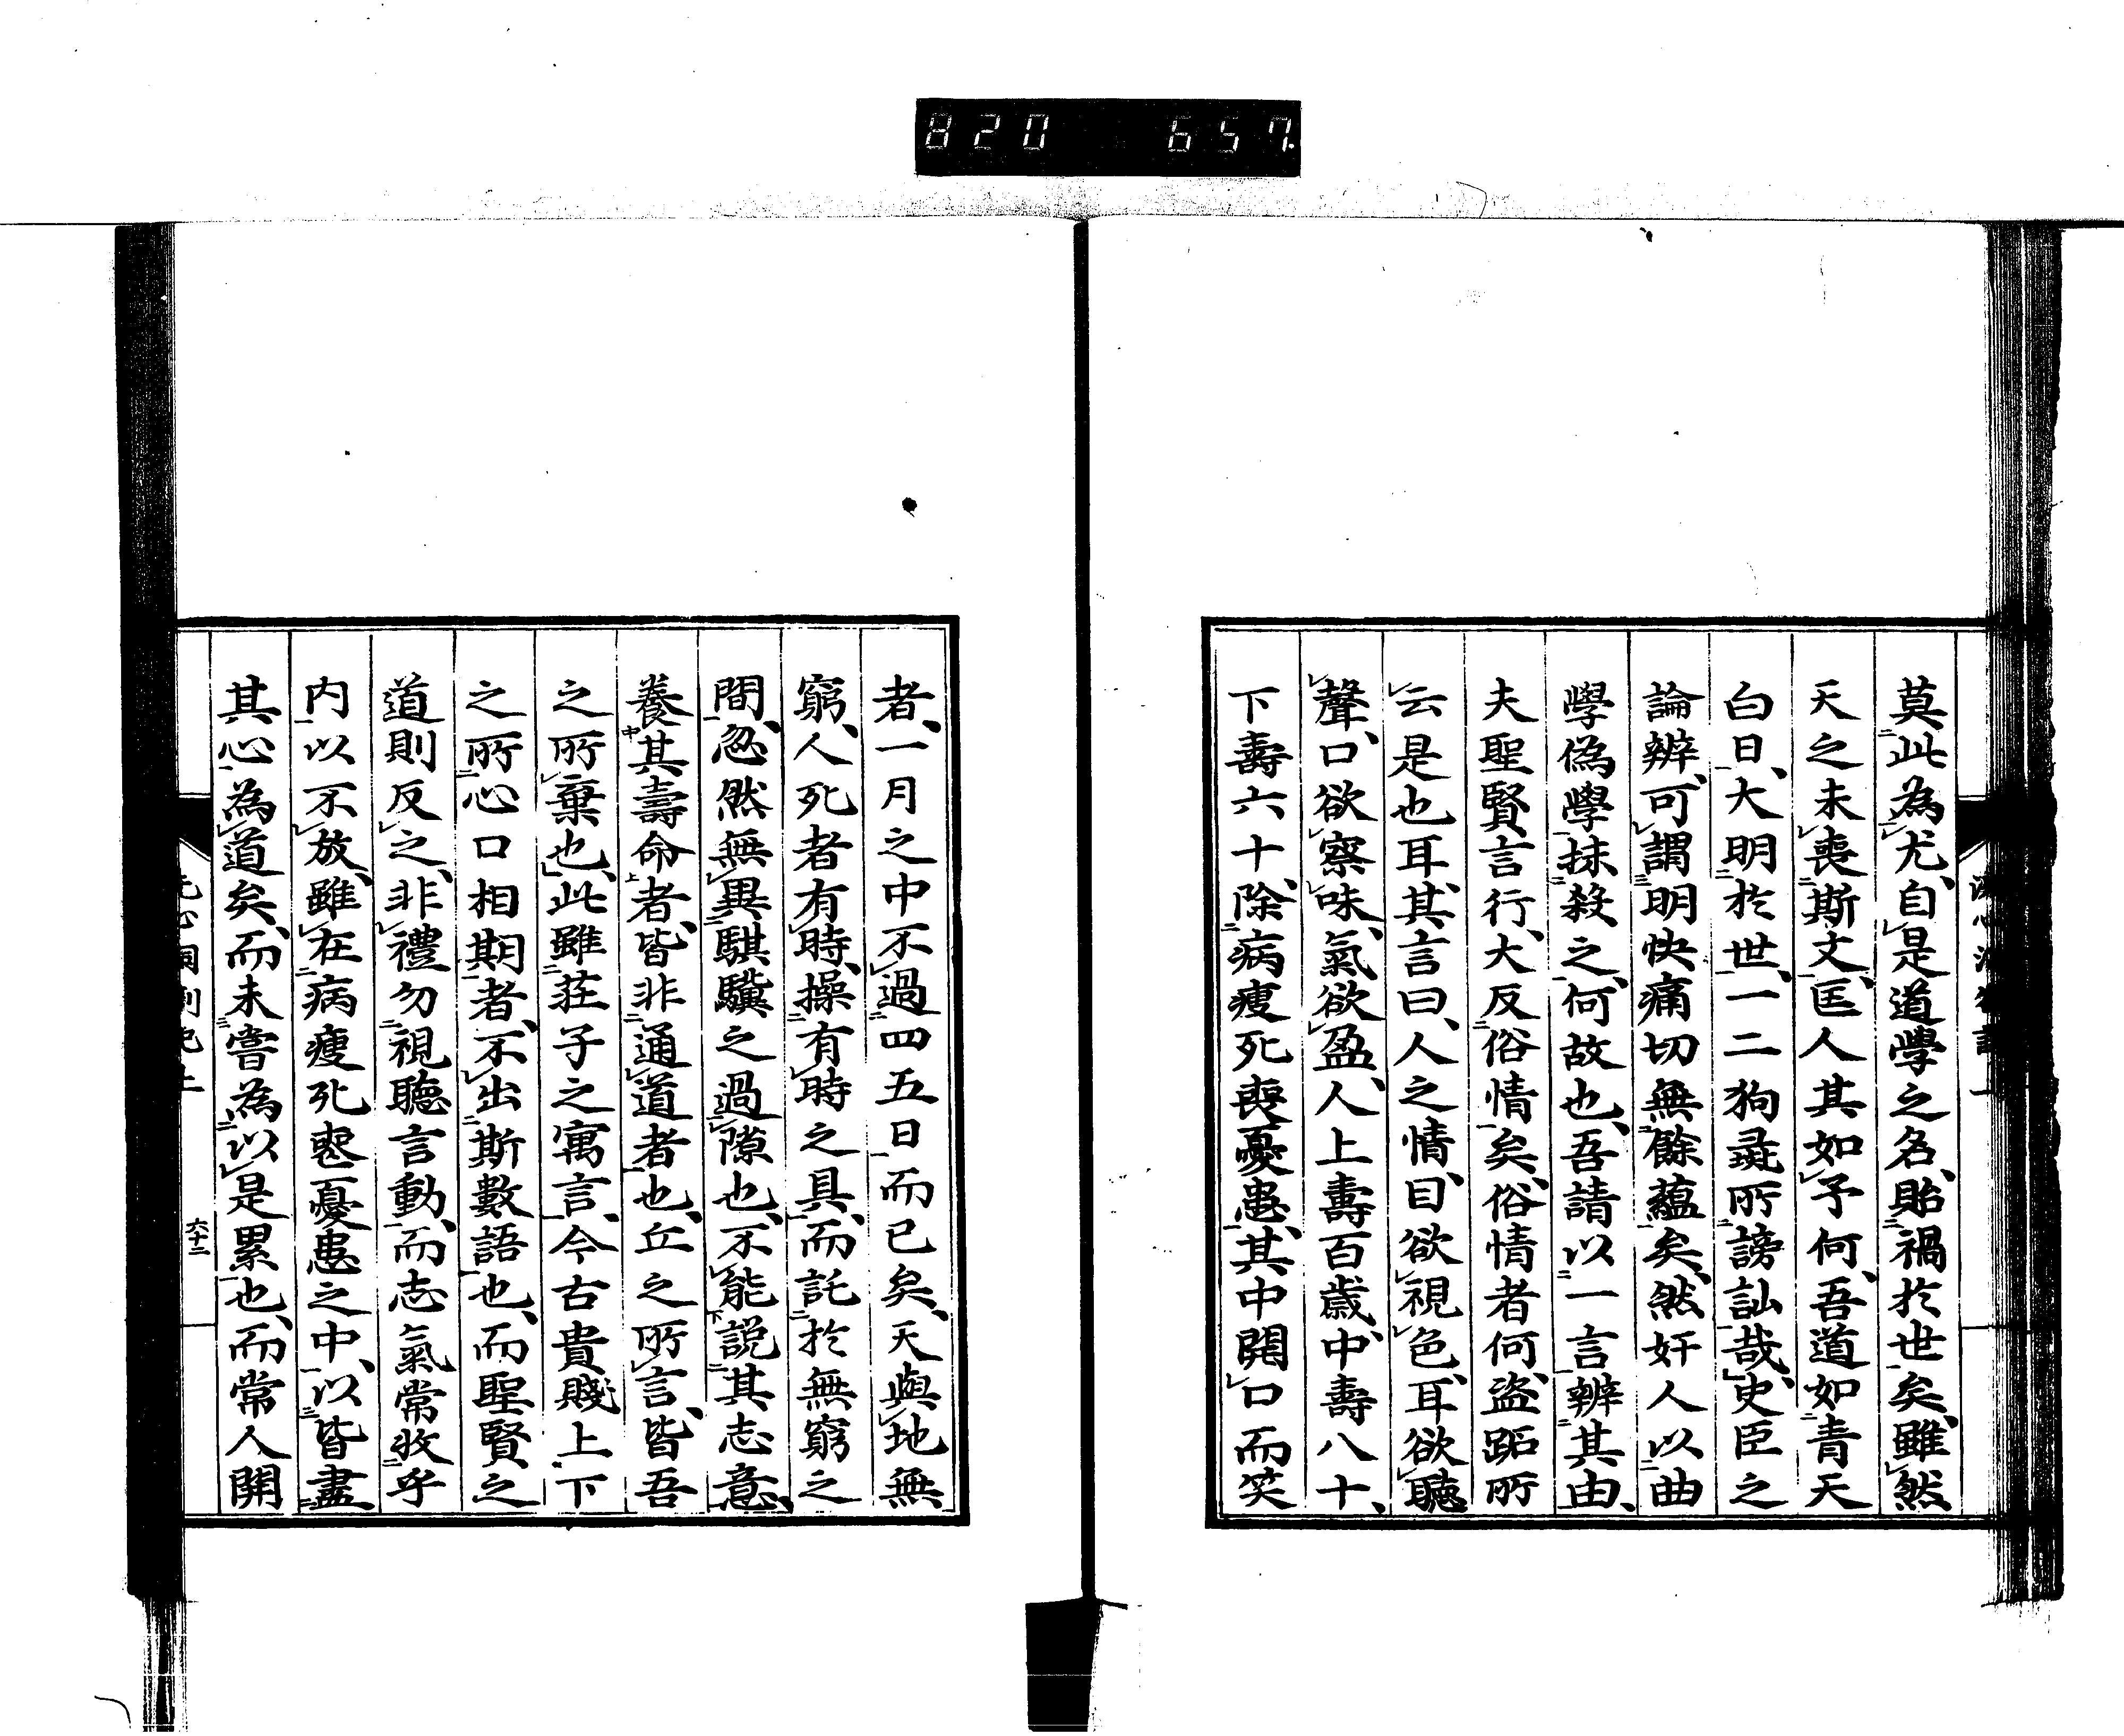 820 657
莫此為尤、自是道學之名、貽禍於世矣、雖然
天之未喪斯文、匡人其如予何、吾道如青天
白日、大明於世、一二狗彘所謗訕哉、史臣之
論辨、可謂明快痛切無餘蘊矣、然奸人以曲
學偽學抹殺之、何故也、吾請以一言辨其由、
夫聖賢言行、大反俗情矣、俗情者何、盗跖所
云是也耳、其言曰、人之情、目欲視色、耳欲聽
聲、口欲察味、氣欲盈、人上壽百歳、中壽八十、
下壽六十、除病瘦死喪憂患、其中開口而笑
者、一月之中不過四五日而已矣、天與地無
窮、人死者有時、操有時之具、而託於無窮之
間、忽然無異騏驥之過隙也、不能説其志意、
養其壽命者、皆非通道者也、丘之所言、皆吾
之所棄也、此雖莊子之寓言、今古貴賤上下
之所心口相期者、不出斯數語也、而聖賢之
道則反之、非禮勿視聽言動、而志氣常收乎
内以不放、雖在病瘦死喪憂患之中、以皆盡
其心為道矣、而未嘗為以是累也、而常人開
六十二